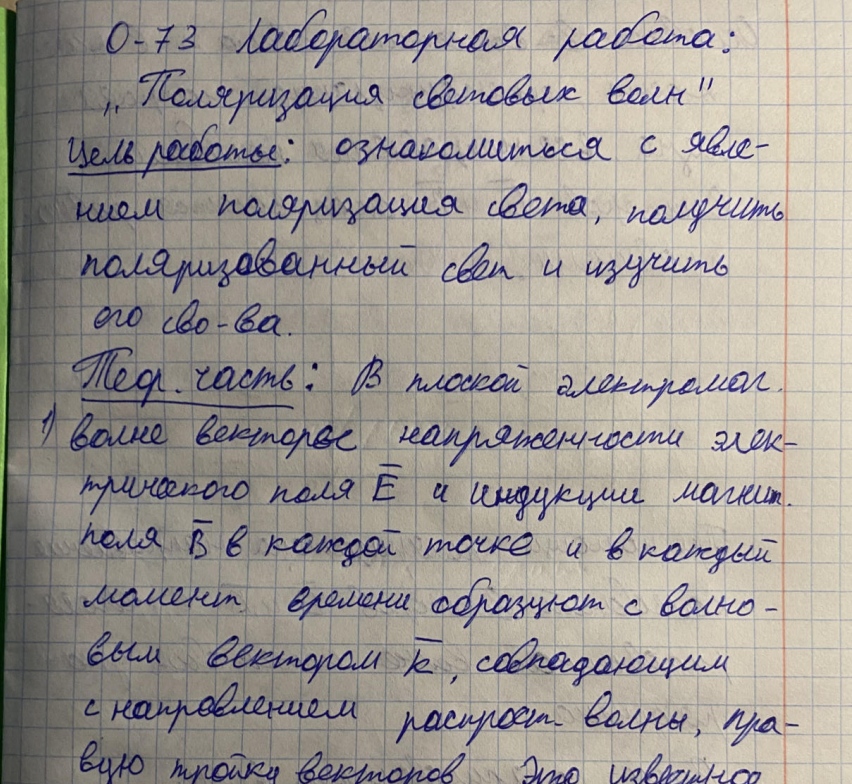 О-73 Лабораторная работа:
„Поляризация световых волн"
Цель работы: ознакомиться с явле-
нием поляризация света, получить
поляризованный свет и изучить
его сво-ва.
Теор. часть: В плоской электромаг.
1) волне векторы напряженности элек-
трического поля E̅ и индукции магнит.
поля B̅ в каждой точке и в каждый
момент времени образуют с волно-
вым вектором k̅, совпадающим
с направлением распрост. волны, пра-
вую тройку векторов. Это известное